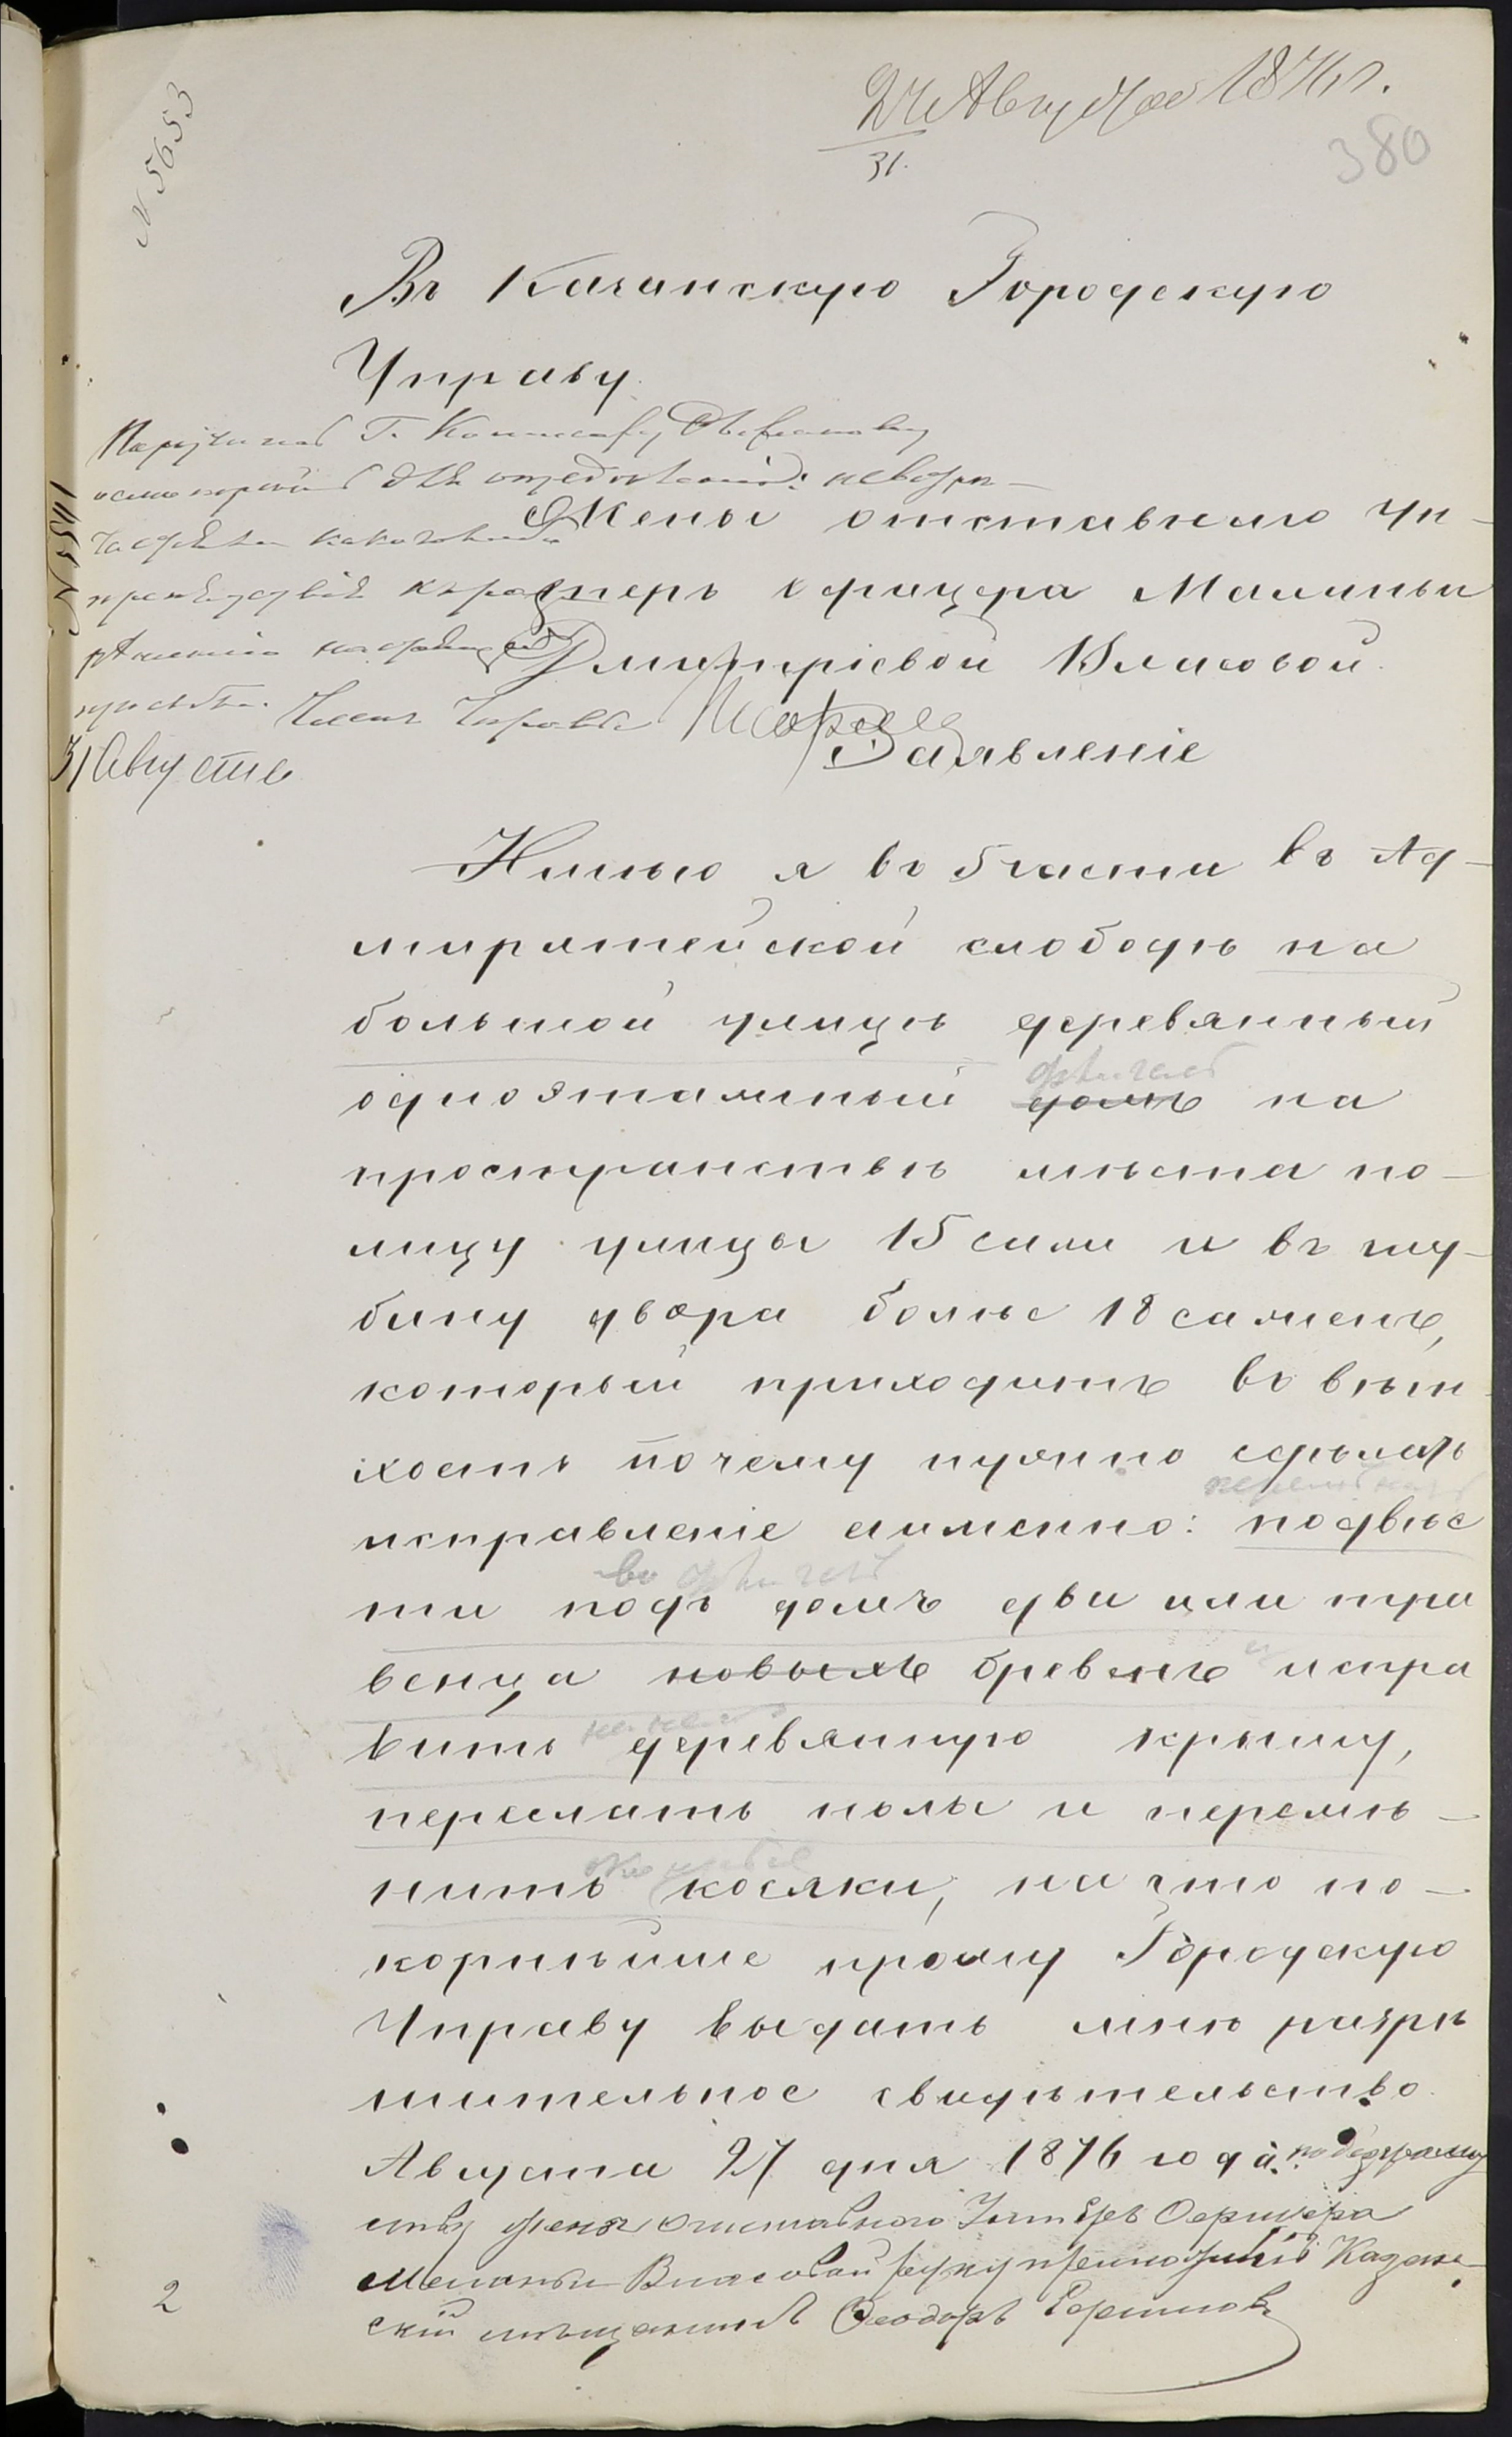 27 Августа 1876 г.
31.
380
N 5653
Въ Казанскую Городскую
Управу.
Поручить Г.
осмотрѣть для опредѣленія: невстрѣ-
чается ли какого либо
препятствія къ раз
рѣшенію настоящей
прозьбы. Членъ Управы
31 Августа
Жены отставнаго Ун-
теръ офицера Маланьи
Дмитріевой Власовой.
Заявленіе
Имѣю я въ 5 части въ Ад-
миралтейской слободѣ на
большой улицѣ деревянный
одноэтажный домъ флигель на
пространствѣ мѣста по-
лицу улицы 15 саж и въ глу-
бину двора болѣе 18 саженъ,
который приходитъ въ вѣт
хость почему нужно сдѣлать
исправленіе а именно: подвѣс
ти подъ домъ два или три
во флигель
венца новыхъ бревенъ и испра
вить деревянную крышу,
переслать полы и перемѣ-
нить косяки, на что по-
корнѣйше прошу Городскую
Управу выдать мнѣ разрѣ
шительное свидѣтельство.
Августа 27 дня 1876 года. по безграмот
ству жены отставного Унтеръ Офицера
Меланьи Власовой руку приложилъ Казан-
скій мѣщанинъ Феодоръ
2